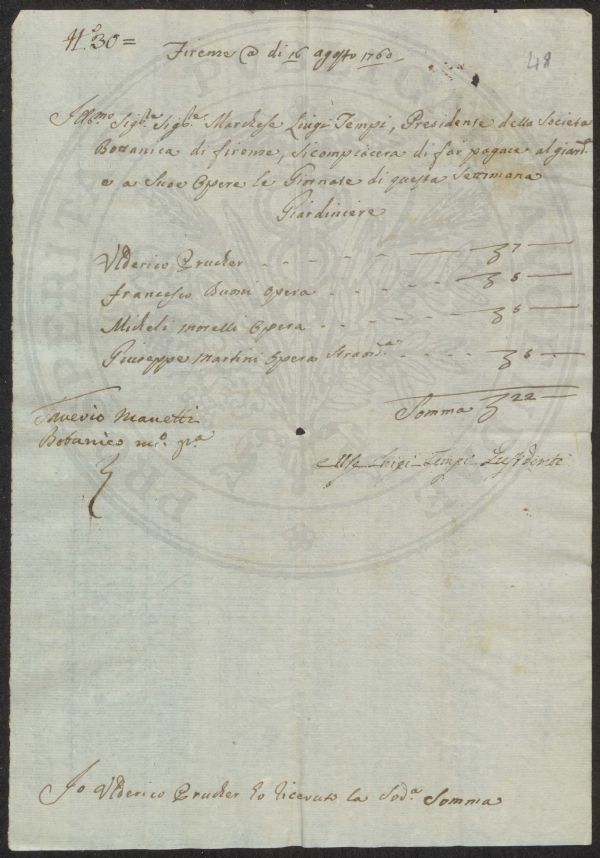 N.º 30 =
48
Firenze @ di 16 agosto 1760.
Ill.mo Sig.re Sig.re Marchese Luigi Tempi, Presidente della Società
Bottanica di firenze, si compiacerà di far pagare al giard.e
e a Sue Opere le Giornate di questa Settimana
Giardiniere
Ulderico Prucker - - - - 7
Francesco Buoni Opera - - - - 5
Micheli Morelli Opera - - - - 5
Giuseppe Martini Opera Straord.a - - 5
Somma 22
Saverio Manetti
Botanico m.o p.a
Luigi Tempi Presidente
Io Ulderico Prucker ho ricevuto la Sod.a Somma